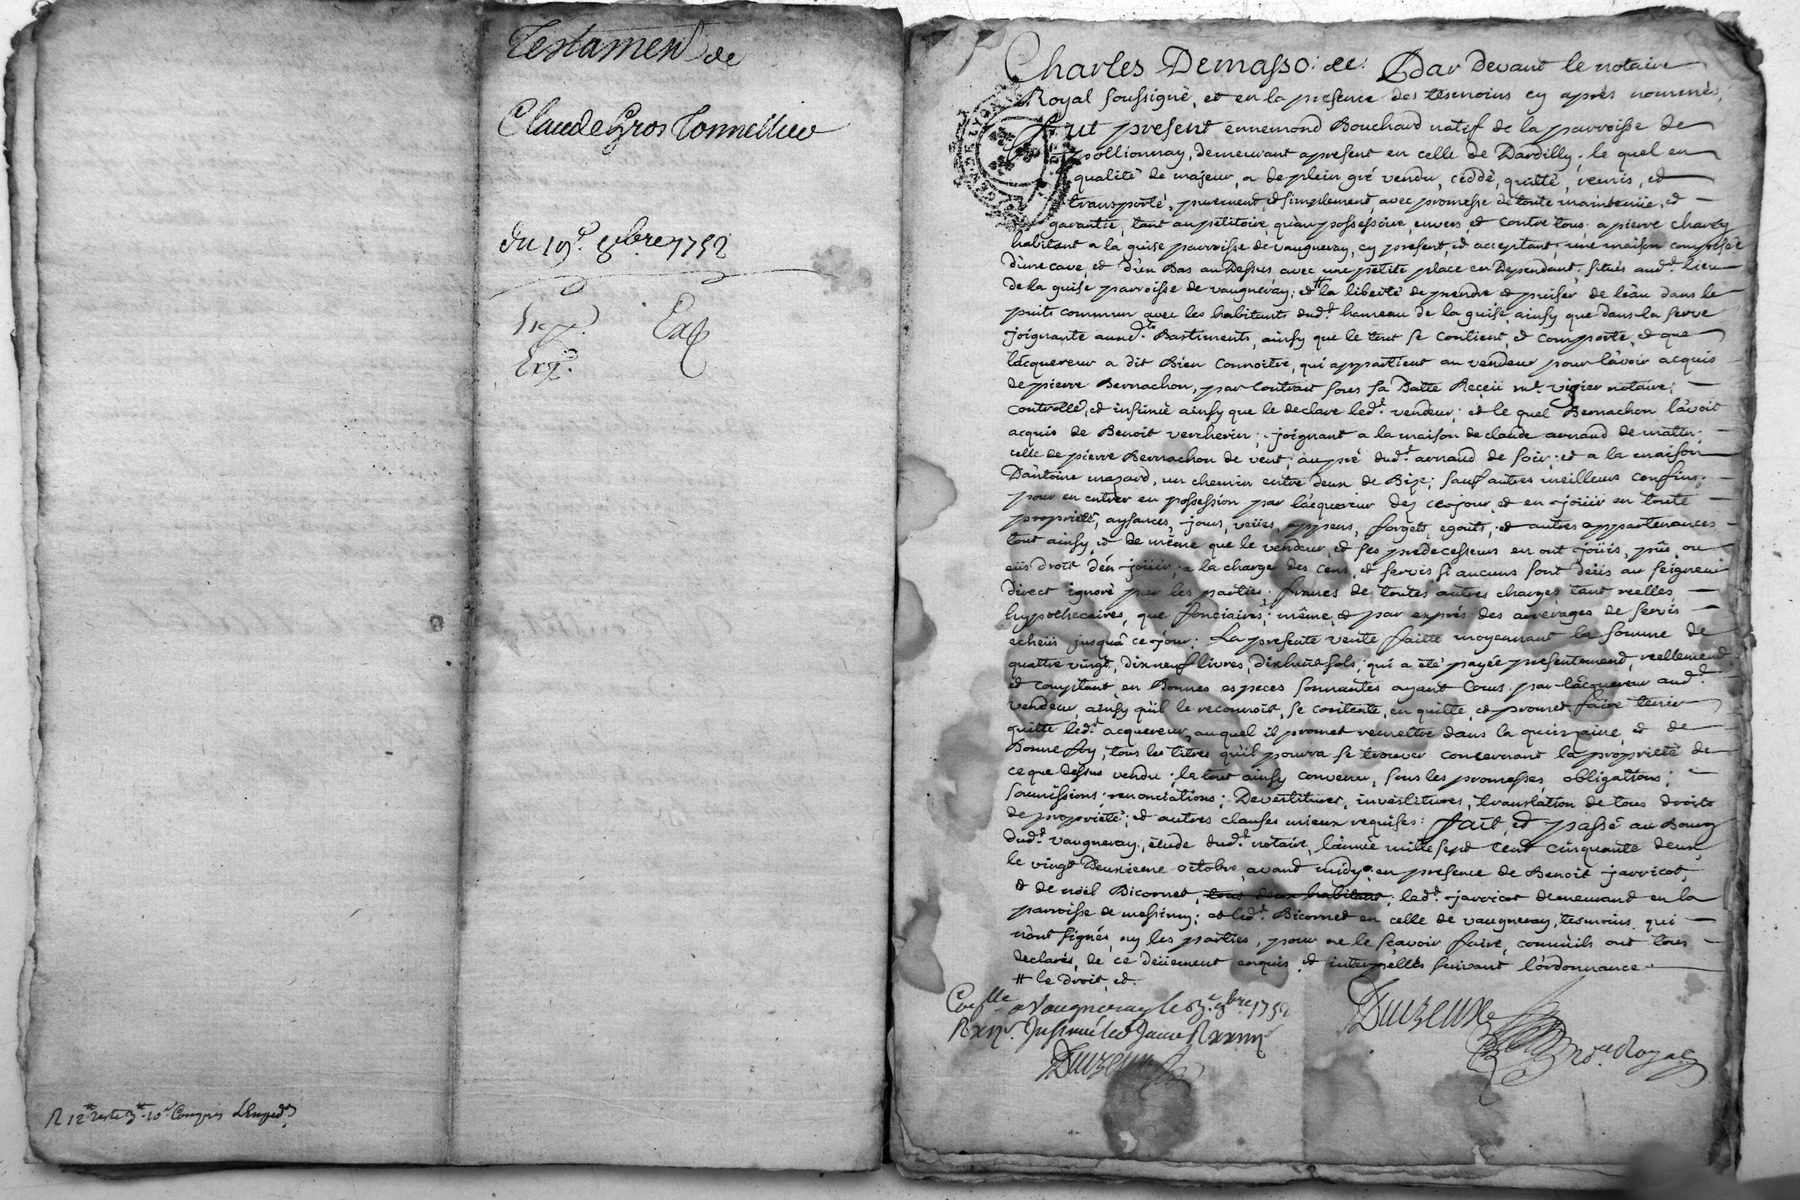 Testament de
Claude Gros Tonnellier
du 19e. 8bre 1752
Exp.
R 12# reste 3#-10s Compris
Charles Demasso: de: Par devant le notaire
Royal soussigné, et en la presence des tesmoins cy après nommés,
fut present ennemond Bouchard natif de la parroisse de
pollionnay, demeurant apresent en celle de Dardilly; le quel en
qualité de majeur, a de plein gré vendu, ceddé, quitté, remis, et
transporté, purement, et simplement, avec promesse de toute maintenüe, et
garantie, tant au petitoire, qu'au possessoire, envers, et contre tous: a pierre charly
habitant a la guise parroisse de vaugneray, cy present, et acceptant; une maison composée
d'une cave, et d'un Bas au Dessus, avec une petite place en Dependant: situés aud.t lieu
de la guise parroisse de vaugneray; et # la liberté de prendre et puiser de l'eau dans le
puits commun avec les habitants dud.t hameau de la guise, ainsy que dans la serve
joignante aund.ts Bastiments, ainsy que le tout se contient, et comporte, et que
l'acquereur a dit Bien connoitre, qui appartient au vendeur pour l'avoir acquis
de pierre Bernachon, par contrat sous sa Datte Reçeü m.e vizier notaire;
controllé, et insinüé ainsy que le declare led.t vendeur; et le quel Bernachon l'avoit
acquis de Benoit vercherin; joignant a la maison de claude arnaud de matin;
celle de pierre Bernachon de vent; au pré dud.t arnaud de soir; et a la maison
D'antoine mazard, un chemin entre deux de Bize; sauf autres meilleurs confins;
pour en entrer en possession par l'acquereur dez ce jour, et en joüir en toute
proprieté, aysances, jours, veües, appens, forgets, egouts, et autres appartenances
tout ainsy, et de même que le vendeur, et ses predecesseurs en ont joüis, pûs, ou
eüs droit d'en joüir; a la charge des cens, et servis si aucuns sont deüs au seigneur
direct ignoré par les parties; francs de toutes autres charges tant reelles,
hypothecaires, que foncieires; même, et par exprés des arrerages de servis
echeüs jusqu'a ce jour: La presente vente faitte moyennant la somme de
quattre vingt, dix neuf livres, dixhuit sols; qui a été payée presentement, reellement
et comptant, en Bonnes especes sonnantes ayant cours par l'acquereur aud.t
vendeur ainsy qu'il le reconnoit, se contente, en quitte, et promet faire tenir
quitte led.t acquereur, auquel il promet remettre dans la quinzaine, et de
Bonne foy, tous les titres qu'il pourra se trouver concernant la proprieté de
ce que dessus vendu; le tout ainsy convenu, sous les promesses, obligations;
soumissions; renonciations; Devestitures, investitures, translation de tous droits
de proprieté; et autres clauses mieux requises: fait, et passé au Bourg
dud.t vaugneray, étude dud.t notaire, l'année mille sept cent cinquante deux,
le vingt Deuxieme octobre, avant midy; en presence de Benoit jarricot,
et de noël Bicornet, tous deux habitant; led.t jarricot demeurant en la
parroisse de messimy; et led.t Bicornet en celle de vaugneray, tesmoins qui
n'ont signés, ny les parties, pour ne le sçavoir faire, comm'ils ont tous
declarés, de ce deüement enquis, et interpellés suivant l'ordonnance.
# le droit, et.
Con.lle a Vaugneray le 8bre 1752
Insinué led Jour
Duzeux
Duzeux
No.re Royal